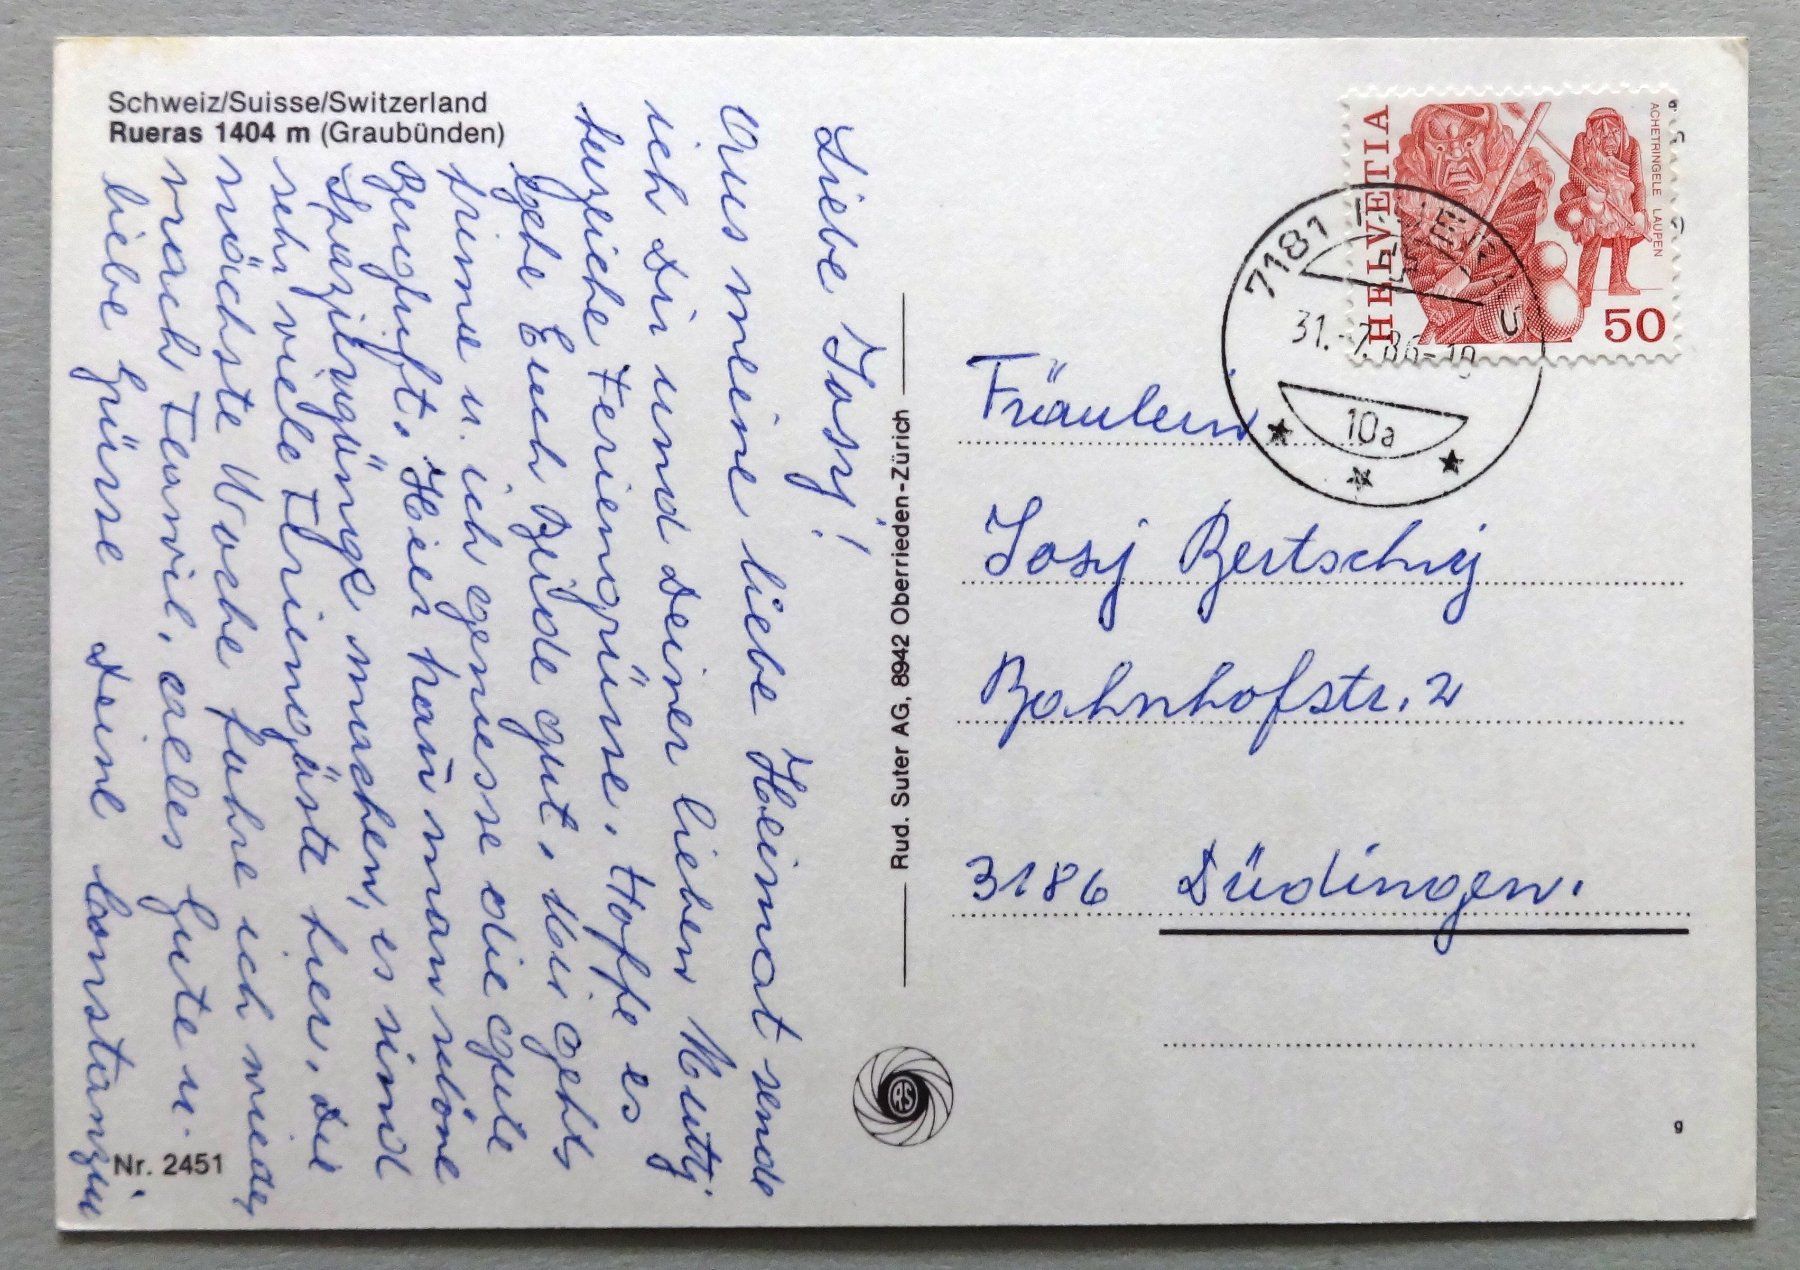 Schweiz/Suisse/Switzerland
Rueras 1404 m (Graubünden)
Liebe Josy!
Aus meine liebe Heimat sende
ich Dir und Deiner lieben Mutti
herzliche Feriengrüsse. Hoffe es
gehe Euch Beide gut. Mir gehts
prima u. ich geniesse die gute
Bergluft. Hier kann man schöne
Spazirgänge machen, es sind
sehr viele Feriengäste hier. Die
nächste Woche fahre ich wieder
nach Flawil, alles Gute u.
liebe Grüsse Deine Constanzia
Nr. 2451
Rud. Suter AG, 8942 Oberrieden-Zürich
RS
HELVETIA
ACHETRINGELE LAUPEN
50
7181
31.-7.86-10
10a
Fräulein
Josy Bertschy
Bahnhofstr. 2
3186 Düdingen.
g